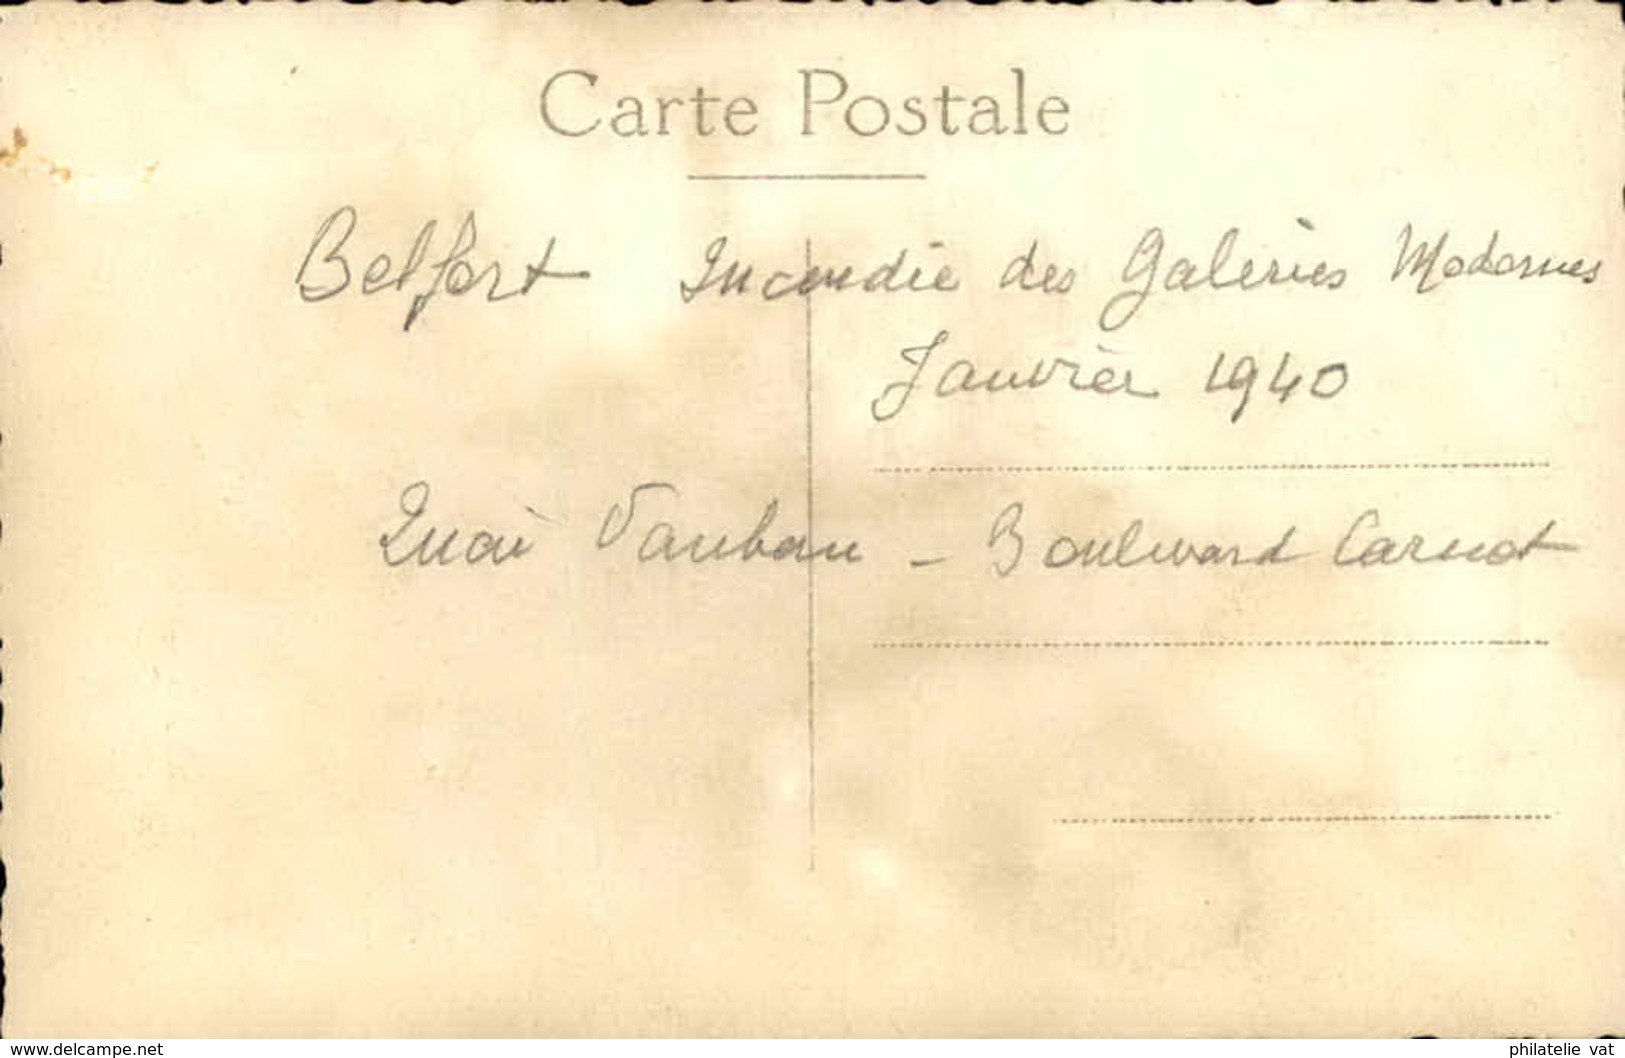 Carte Postale
Belfort Incendie des Galeries Modernes
Janvier 1940
Quai Vauban - Boulevard Carnot
www.delcampe.net
philatelie vat